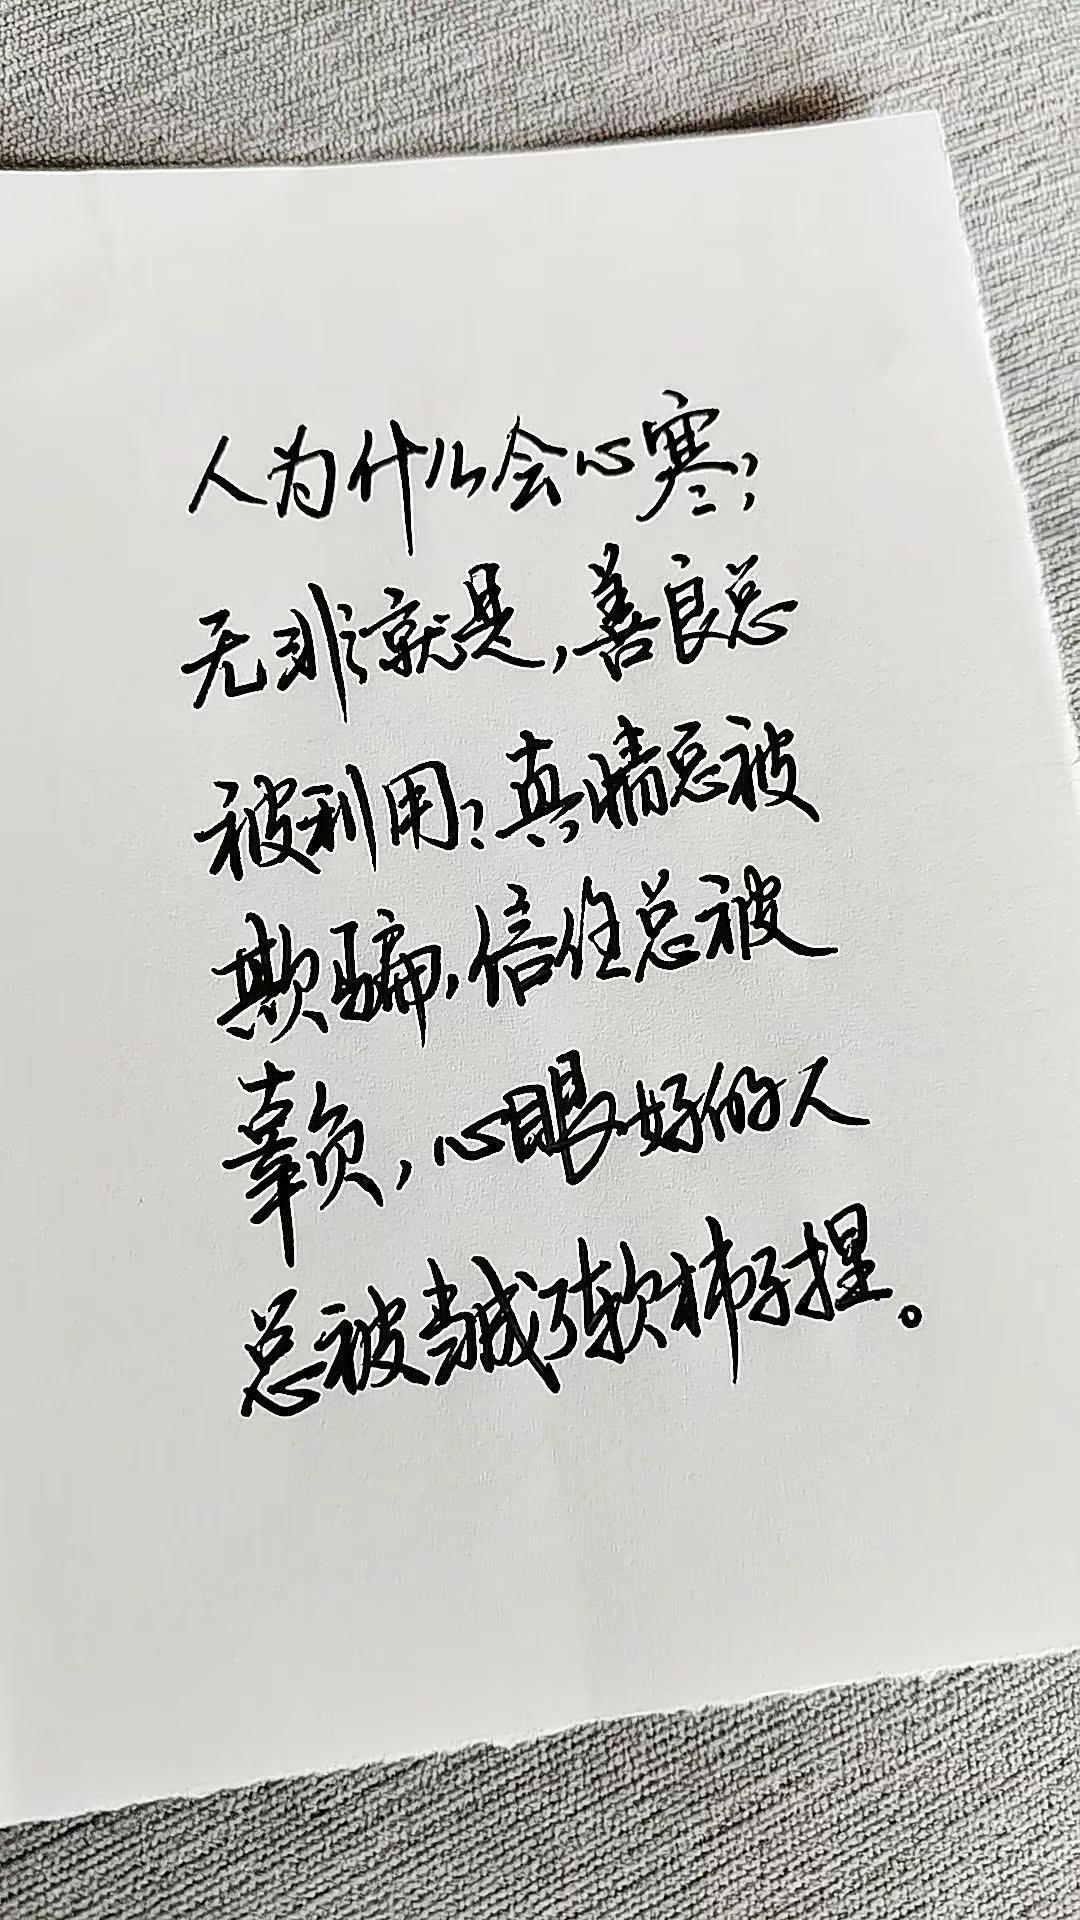 人为什么会心寒；
无非就是，善良总
被利用；真情总被
欺骗，信任总被
辜负，心眼好的人
总被当成了软柿子捏。